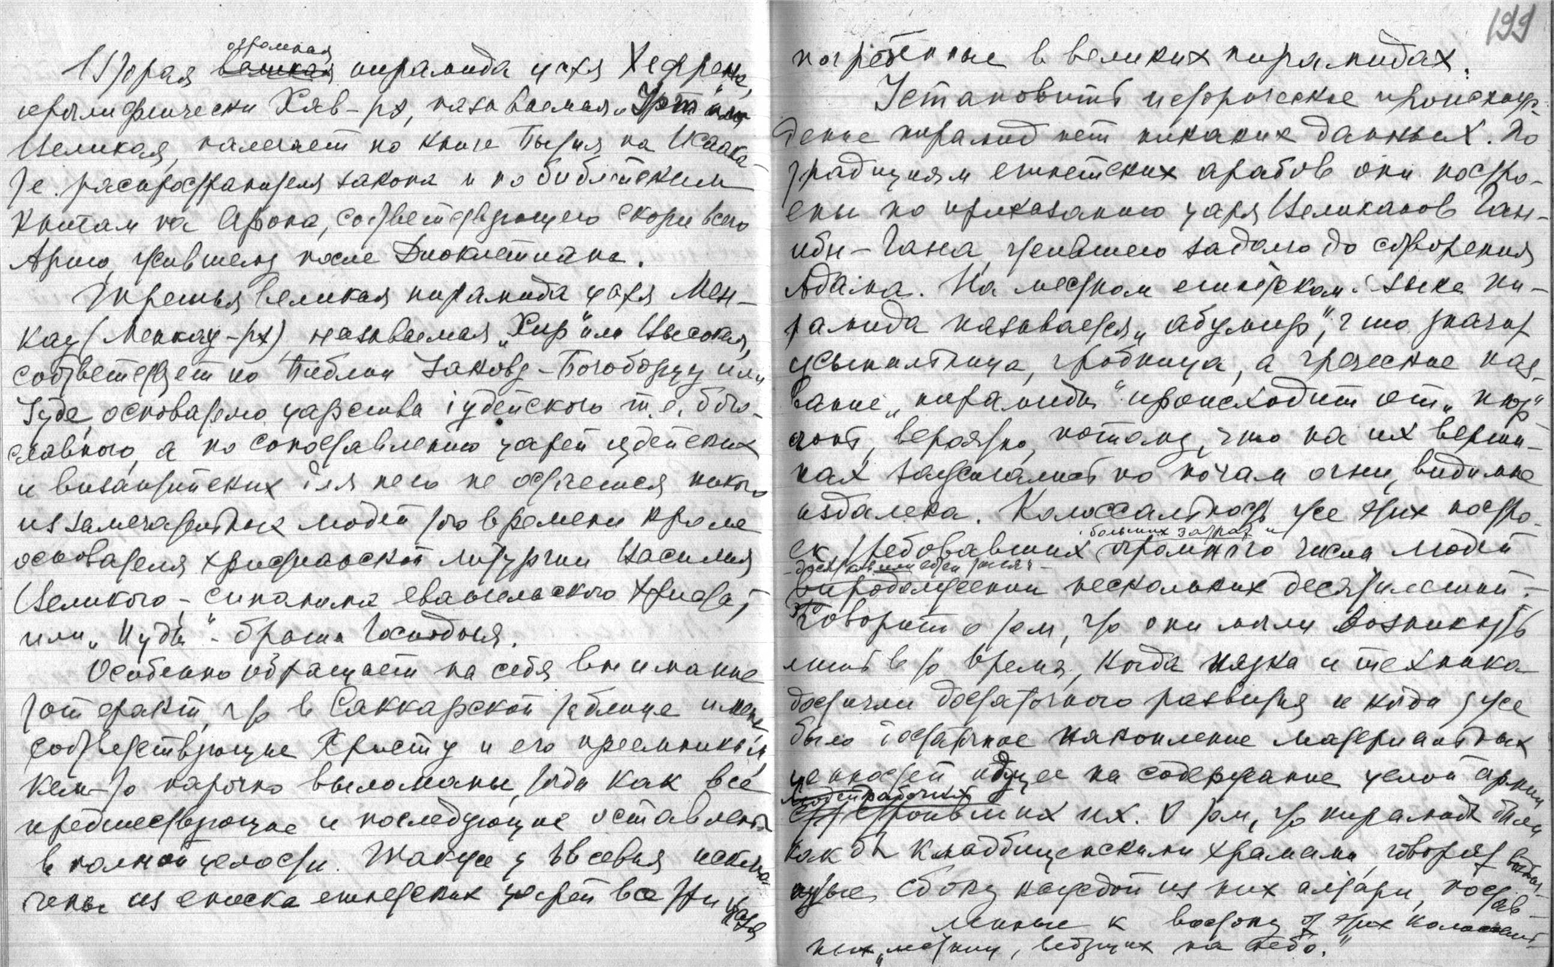 огромная
Вторая великая пирамида царя Хефрена,
иероглифически Хяв-рх, называемая „Урт“ или
Великая, налегает по книге Бытия на Исаака-
т.е. распространителя закона и по библейским
книгам на Арона, соответствующего скорее всего
Арию, жившему после Диоклетиана.
Третья великая пирамида царя Мен-
кау (Менкау-рх) называемая „Хир“ или Высокая,
соответствует по Библии Иакову-Богоборцу или
Іуде, основателю царства іудейского т.е. бого-
славного, а по сопоставлению царей иудейских
и византийских для него не остается никого
из замечательных людей того времени кроме
основателя христианской литургии Василия
Великого - синонима евангельского Христа,
или „Иуды“ - брата Господня.
Особенно обращает на себя внимание
тот факт, что в Саккарской таблице имена
соответствующие Христу и его преемникам,
кем-то нарочно выломаны, тогда как все
предшествующие и последующие оставлены
в полной целости. Также у Евсевия исклю-
чены из списка египетских царей все эти цари
199
погребенные в великих пирамидах.
Установить историческое происхож-
дение пирамид нет никаких данных. По
традициям египетских арабов они постро-
ены по приказанию царя Великанов Ган-
ибн-Гана, жившего задолго до сотворения
Адама. На местном египетском языке пи-
рамида называется „абумир“, что значит
усыпальница, гробница, а греческое наз-
вание „пирамиды“ происходит от „пюр“
огонь, вероятно, потому, что на их верши-
нах зажигались по ночам огни, видимые
издалека. Колоссальность же этих постро-
больших затрат и
ек, требовавших огромного числа людей
в продолжении нескольких десятилетий -
говорит о том, что они могли возникнуть
лишь в то время, когда наука и техника
достигли достаточного развития и когда уже
было достаточное накопление материальных
ценностей идущее на содержание целой армии
людей рабочих
строивших их. О том, что пирамиды были
как бы кладбищенскими храмами, говорят
сбоку каждой из них алтари, постав-
ленные к востоку от этих колоссаль-
ных „лестниц, ведущих на небо.“